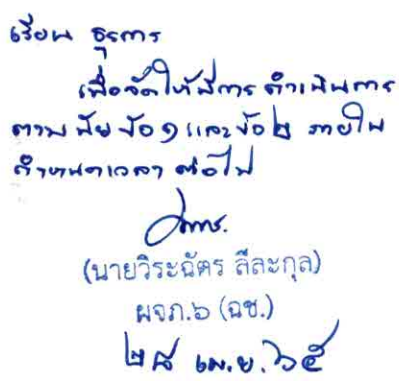 เรียน ธุรการ
เพื่อจัดให้มีการดำเนินการ
ตามนัยข้อ ๑ และข้อ ๒ ภายใน
กำหนดเวลา ต่อไป
(นายวิระฉัตร ลีละกุล)
ผจภ.๖ (ฉช.)
๒๘ เม.ย. ๖๕